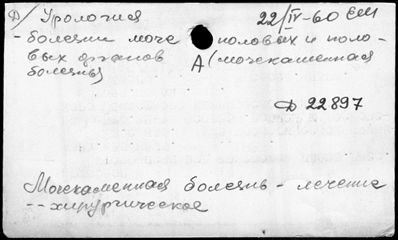 Д/ Урология 22/IV-60 ЕМ
- болезни моче половых и поло-
вых органов А (мочекаменная
болезнь)
Д 22897
Мочекаменная болезнь - лечение
-- хирургическое